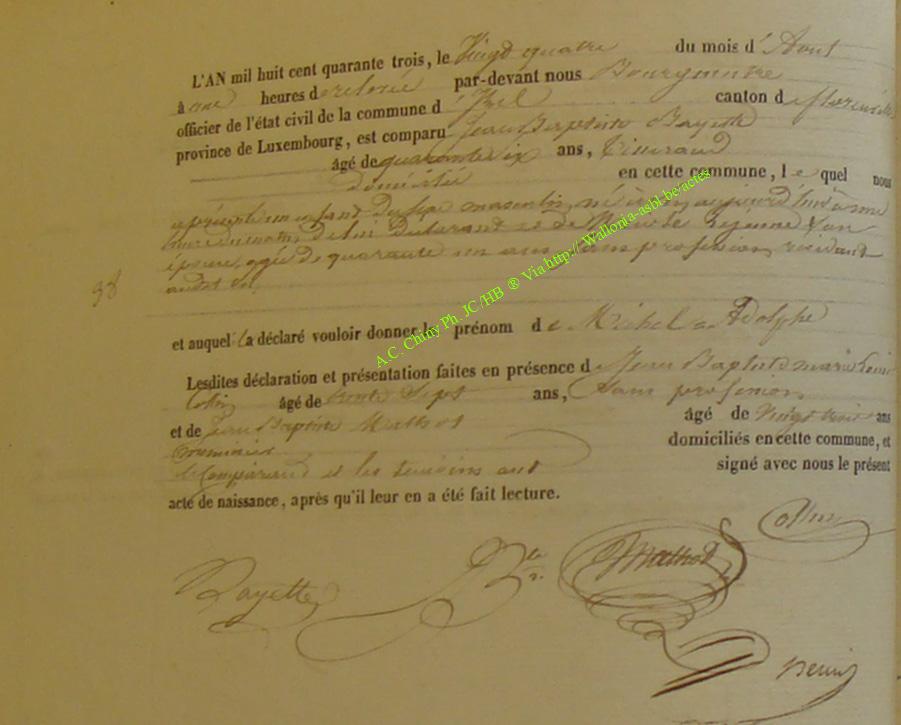 L'AN mil huit cent quarante trois, le Vingt quatre du mois d'Aout
à une heures de relevée par-devant nous Bourgmestre
officier de l'état civil de la commune d'Izel canton de florenville
province de Luxembourg, est comparu Jean Baptiste Bayette
âgé de quarante six ans, Tisserand
domicilié en cette commune, lequel nous
a présenté un enfant du sexe masculin, né à Izel aujourd'hui à une
heure du matin, de lui déclarant et de Marie
épouse, agée de quarante un ans, sans profession, résidant
audit Izel
38
et auquel il a déclaré vouloir donner les prénom de Michel Adolphe
Lesdites déclaration et présentation faites en présence de Jean Baptiste marie
Collin âgé de trente Sept ans, Sans profession
et de Jean Baptiste Mathot âgé de Vingt trois ans
domiciliés en cette commune, et
le Comparant et les témoins ont signé avec nous le présent
acte de naissance, après qu'il leur en a été fait lecture.
Collin
Bayette J Bte Mathot
A.C. Chiny Ph. JC/HB ® Via http:// Wallonia-asbl.be/actes